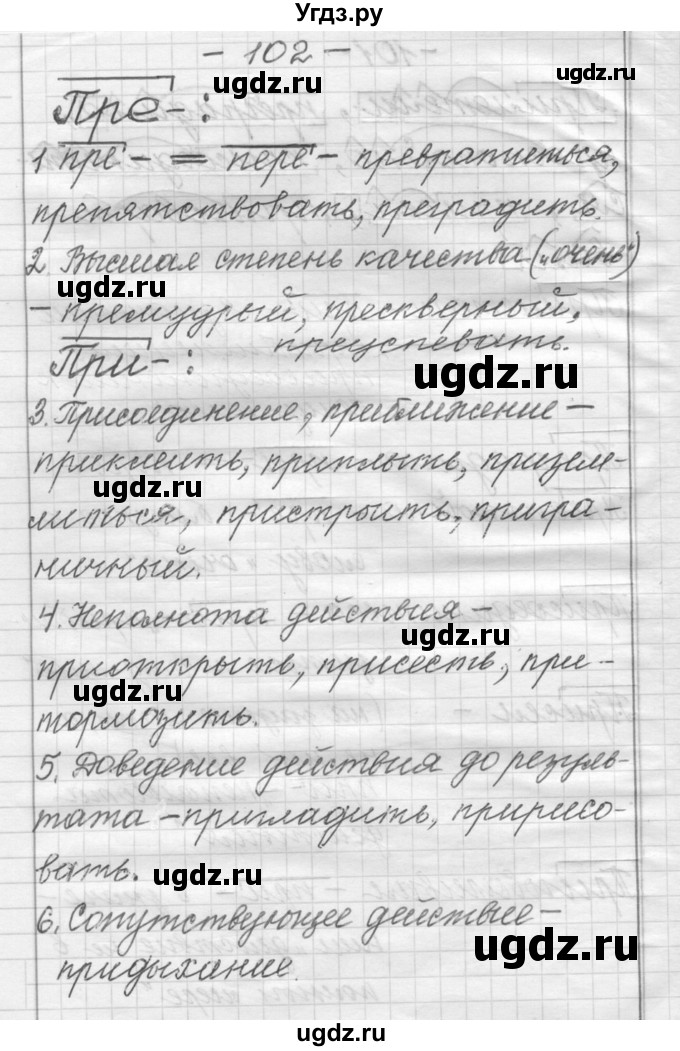 Угдз.ру
- 102 -
ugdz.ru
ugdz.ru
Пре- :
ugdz.ru
1 пре- = пере-, превратиться,
препятствовать, преградить.
2. Высшая степень качества („очень“)
ugdz.ru
- премудрый, прескверный,
преуспевать.
При- :
ugdz.ru
3. Присоединение, приближение -
приклеить, приплыть, призем-
ugdz.ru
литься, пристроить, пригра-
ugdz.ru
ничный.
4. Неполнота действия -
ugdz.ru
приоткрыть, присесть, при-
ugdz.ru
тормозить.
5. Доведение действия до резуль-
тата - пригладить, пририсо-
вать.
ugdz.ru
6. Сопутствующее действие -
ugdz.ru
придыхание.
ugdz.ru